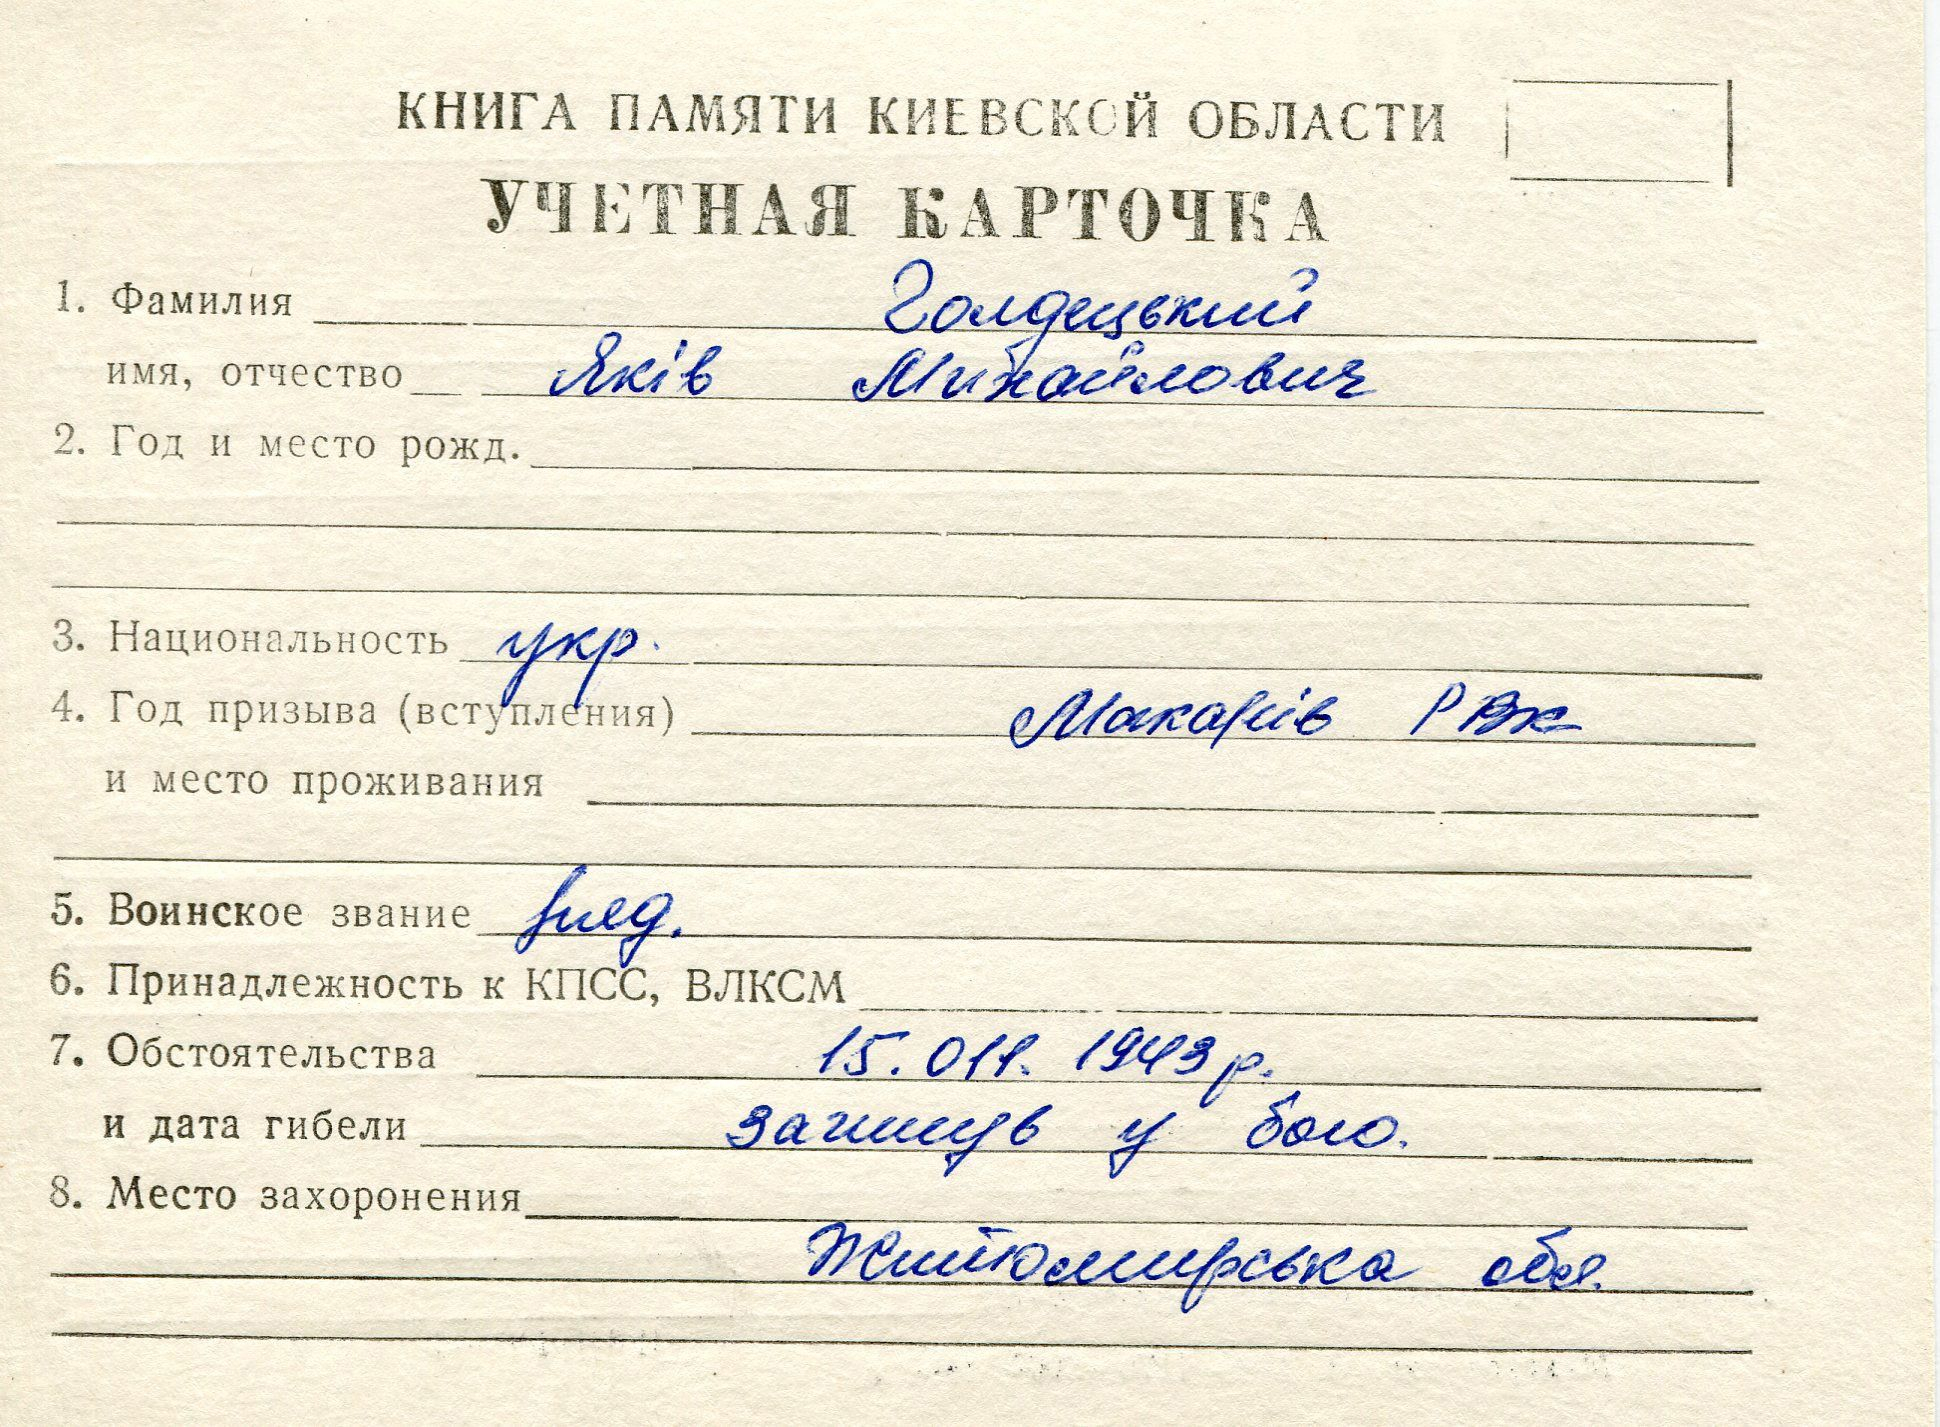 КНИГА ПАМЯТИ КИЕВСКОЙ ОБЛАСТИ
УЧЕТНАЯ КАРТОЧКА
1. Фамилия Голдецький
имя, отчество Яків Михайлович
2. Год и место рожд.
3. Национальность укр.
4. Год призыва (вступления) Макарів РВК
и место проживания
5. Воинское звание
6. Принадлежность к КПСС, ВЛКСМ
7. Обстоятельства 15.011.1943 р.
и дата гибели загинув у бою.
8. Место захоронения
Житомирська обл.